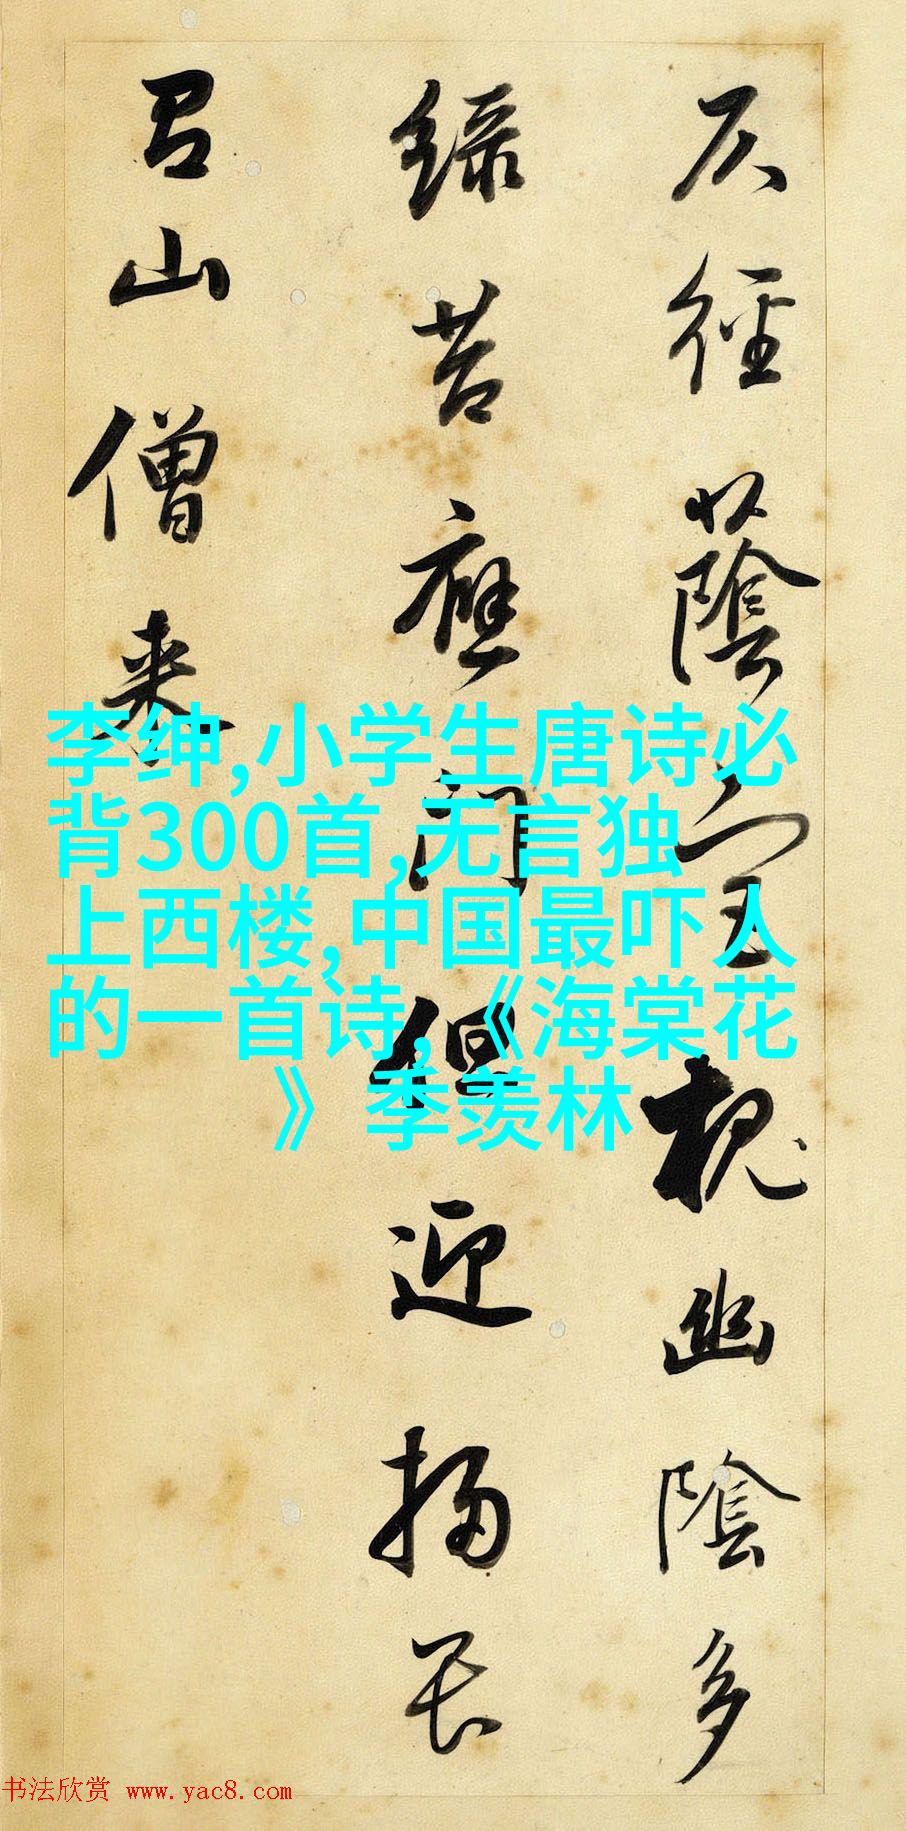 仄徑蔭宮槐幽陰多
綠苔應門但迎掃畏
有山僧來
李绅,小学生唐诗必
背300首,无言独
上西楼,中国最吓人
的一首诗,《海棠花
》 季羡林
书法欣赏 www.yac8.com